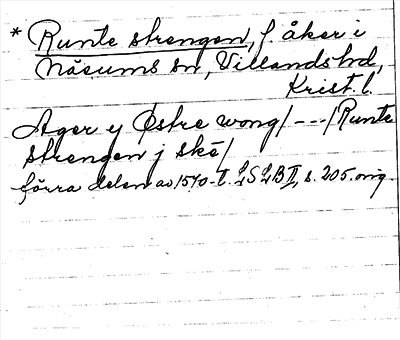 * Runte strengen, f. åker i
Näsums sn, Villands hd,
Krist. l.
Ager y Østre wong/---/Runte
strengen j skë/
förra delen av 1570-t. LSLB II, s. 205. orig.